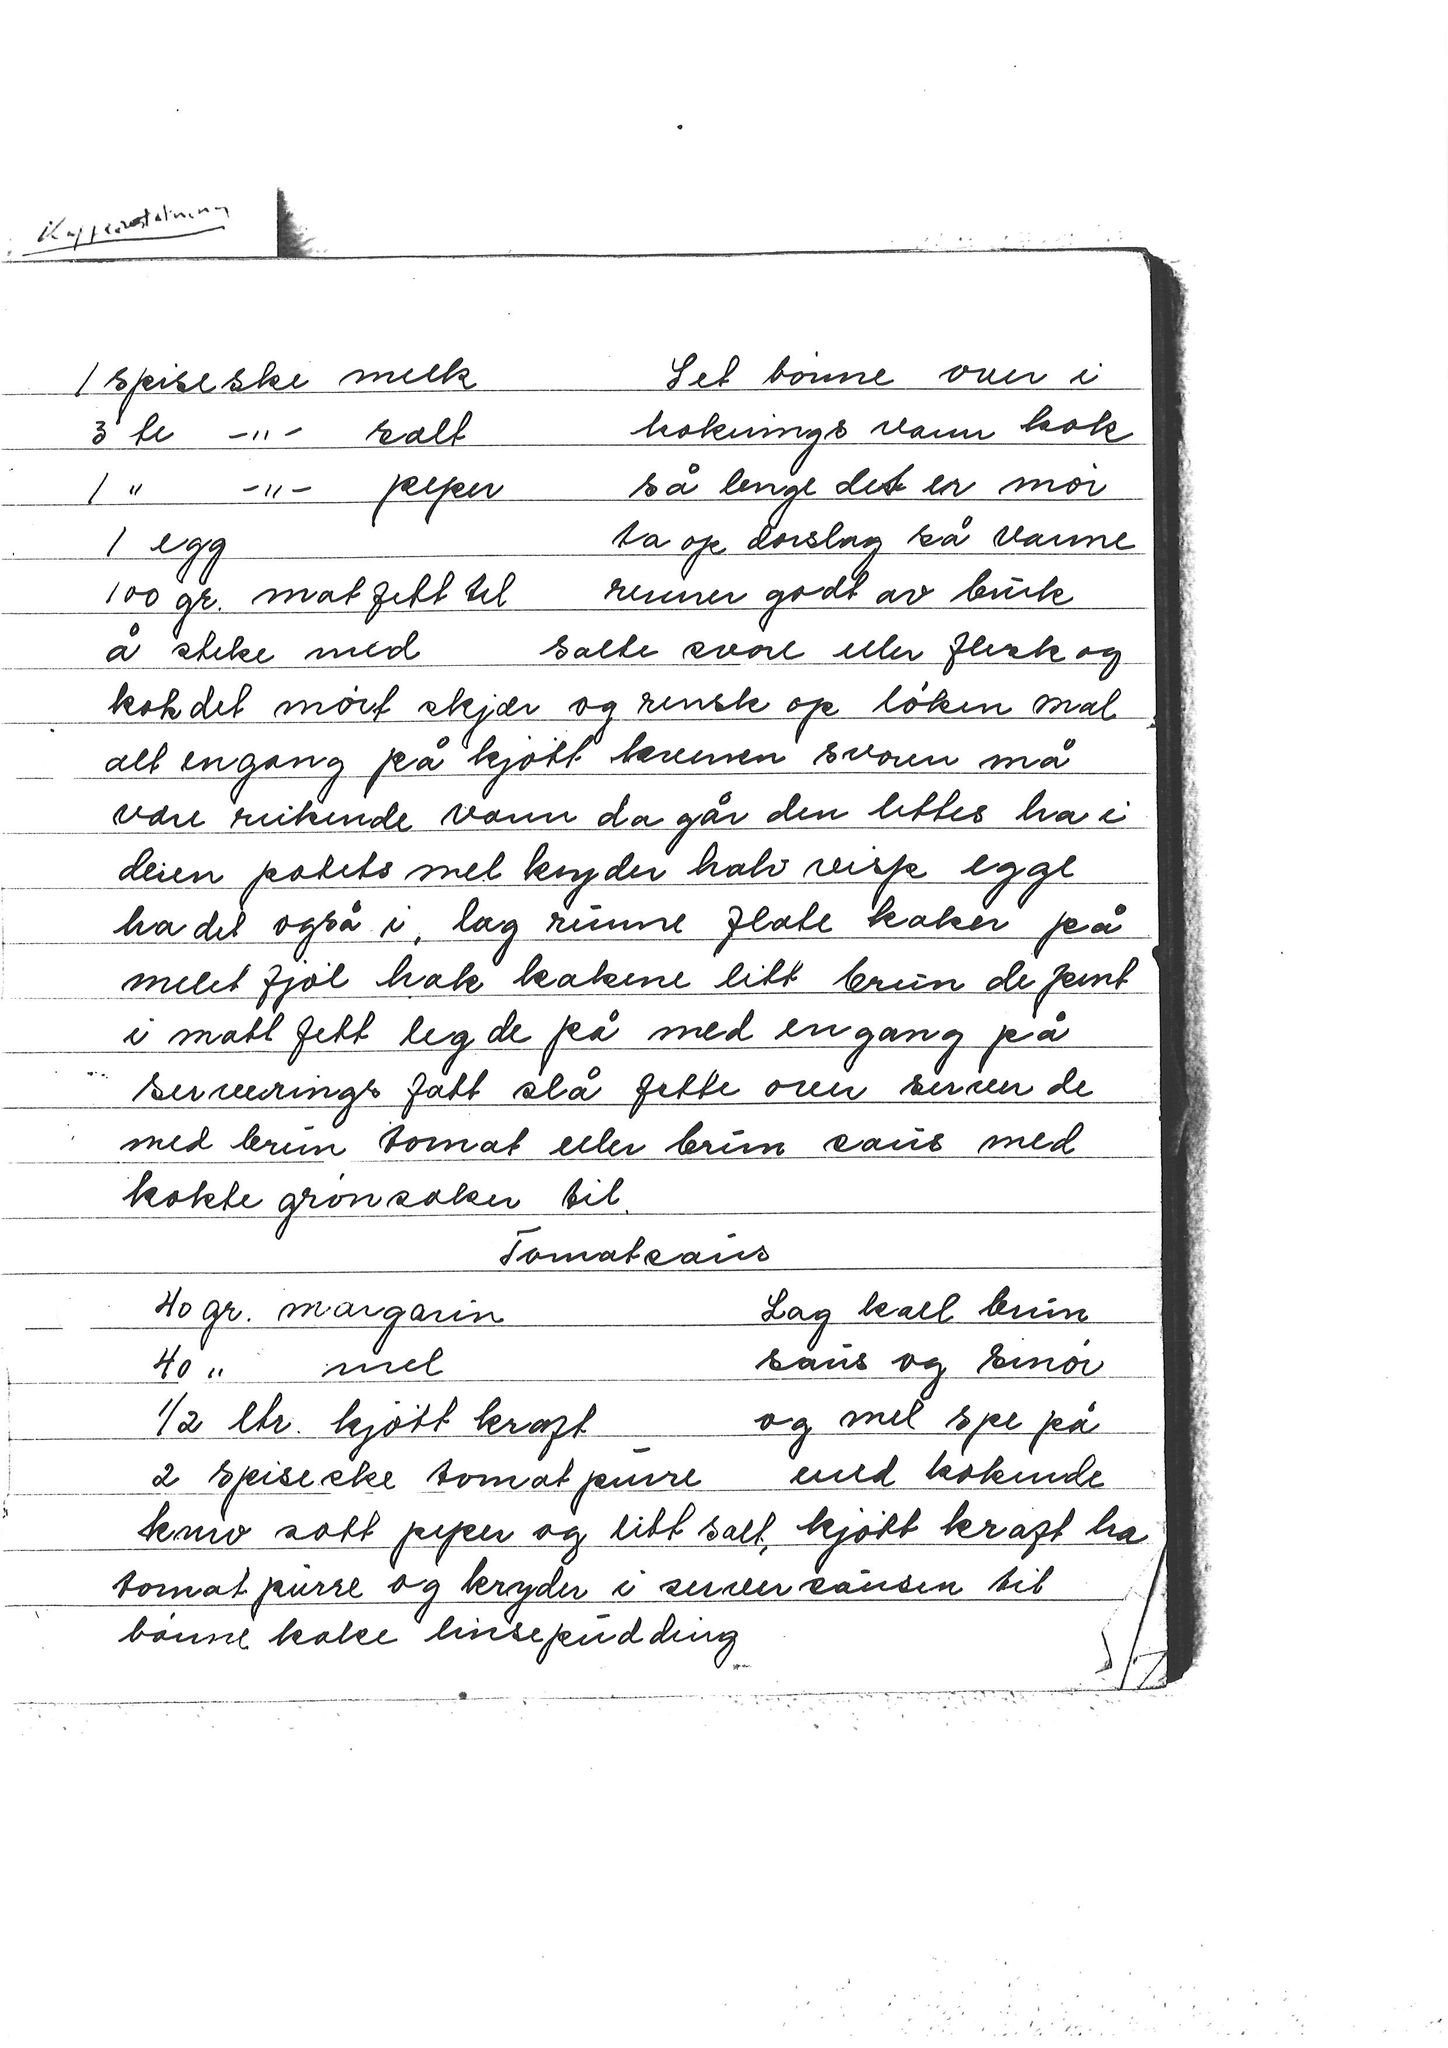 1 spiseske melk Set bönne over i
3 te -"- salt koknings vann kok
1 " -"- peper så lenge det er mör
1 egg ta op dörslag så vanne
100 gr. mat fett til renner godt av brúk
å steke med salte svore eller flesk og
kok det mört skjær og rensk op löken mal
alt engang på kjött kvernen svoren må
være rúkende varm da går den lettes ha i
deien potets mel kryder halv visp egge
ha det også i, lag rúnne flate kaker på
melet fjöl hak kakene litt brún de pent
i matt fett leg de på med engang på
serveerings fatt slå fette over server de
med brún tomat eller brún saús med
kokte grönsaker til.
Tomatsaús
40 gr. margarin Lag kall brún
40 " mel saús og smör
1/2 ltr. kjött kraft og mel spe på
2 spiseske tomat púrre med kokende
kniv sott peper og litt salt, kjött kraft ha
tomat púrre og kryder i server saúsen til
bönne kake linsepúdding